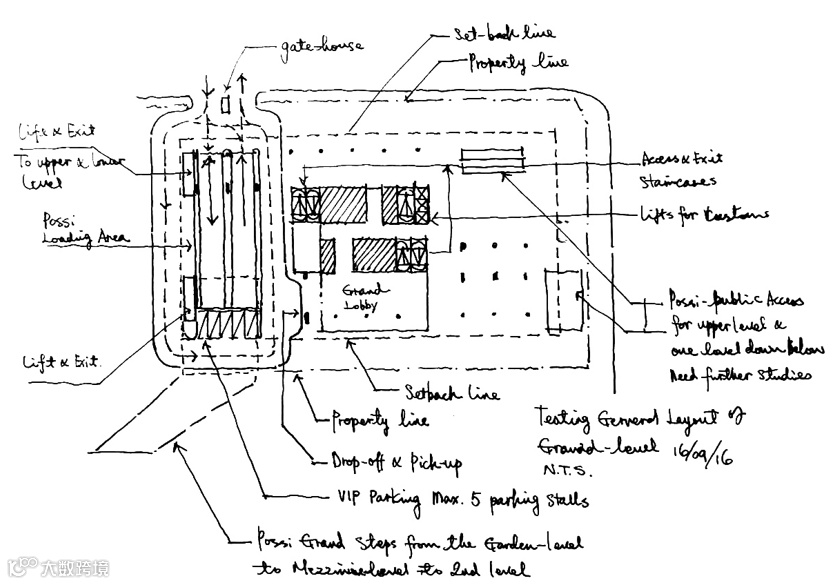 gate-house
Set-back line
Property line
Lift & Exit
To upper & lower
level
Possi
Loading Area
Lift & Exit.
Access & Exit
Staircases
Lifts for Customs
Grand
Lobby
Possi-public Access
for upper level &
one level down below
Need further studies
Setback Line
Property line
Drop-off & Pick-up
VIP Parking Max. 5 parking stalls
Possi Grand Steps from the Garden-level
to Mezzinine level to 2nd level
Testing General Layout of
Ground-level 16/09/16
N.T.S.
大数跨境